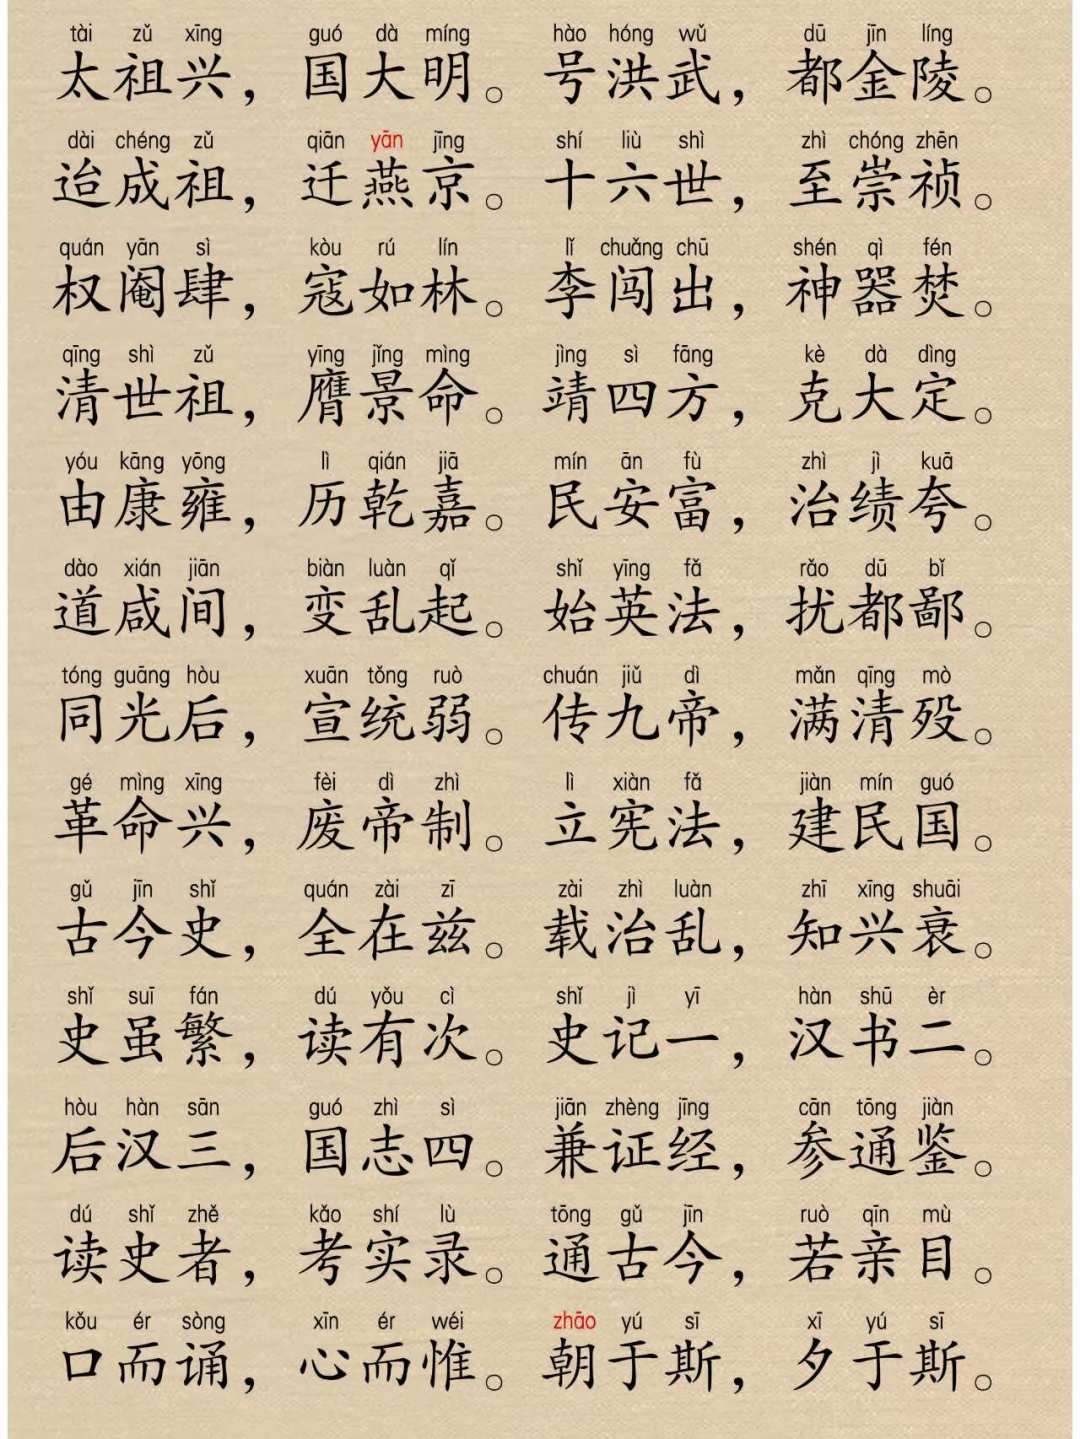 tài zǔ xīng guó dà míng hào hóng wǔ dū jīn líng
太祖兴，国大明。号洪武，都金陵。
dài chéng zǔ qiān yān jīng shí liù shì zhì chóng zhēn
迨成祖，迁燕京。十六世，至崇祯。
quán yān sì kòu rú lín lǐ chuǎng chū shén qì fén
权阉肆，寇如林。李闯出，神器焚。
qīng shì zǔ yīng jǐng mìng jìng sì fāng kè dà dìng
清世祖，膺景命。靖四方，克大定。
yóu kāng yōng lì qián jiā mín ān fù zhì jì kuā
由康雍，历乾嘉。民安富，治绩夸。
dào xián jiān biàn luàn qǐ shǐ yīng fǎ rǎo dū bǐ
道咸间，变乱起。始英法，扰都鄙。
tóng guāng hòu xuān tǒng ruò chuán jiǔ dì mǎn qīng mò
同光后，宣统弱。传九帝，满清殁。
gé mìng xīng fèi dì zhì lì xiàn fǎ jiàn mín guó
革命兴，废帝制。立宪法，建民国。
gǔ jīn shǐ quán zài zī zài zhì luàn zhī xīng shuāi
古今史，全在兹。载治乱，知兴衰。
shǐ suī fán dú yǒu cì shǐ jì yī hàn shū èr
史虽繁，读有次。史记一，汉书二。
hòu hàn sān guó zhì sì jiān zhèng jīng cān tōng jiàn
后汉三，国志四。兼证经，参通鉴。
dú shǐ zhě kǎo shí lù tōng gǔ jīn ruò qīn mù
读史者，考实录。通古今，若亲目。
kǒu ér sòng xīn ér wéi zhāo yú sī xī yú sī
口而诵，心而惟。朝于斯，夕于斯。